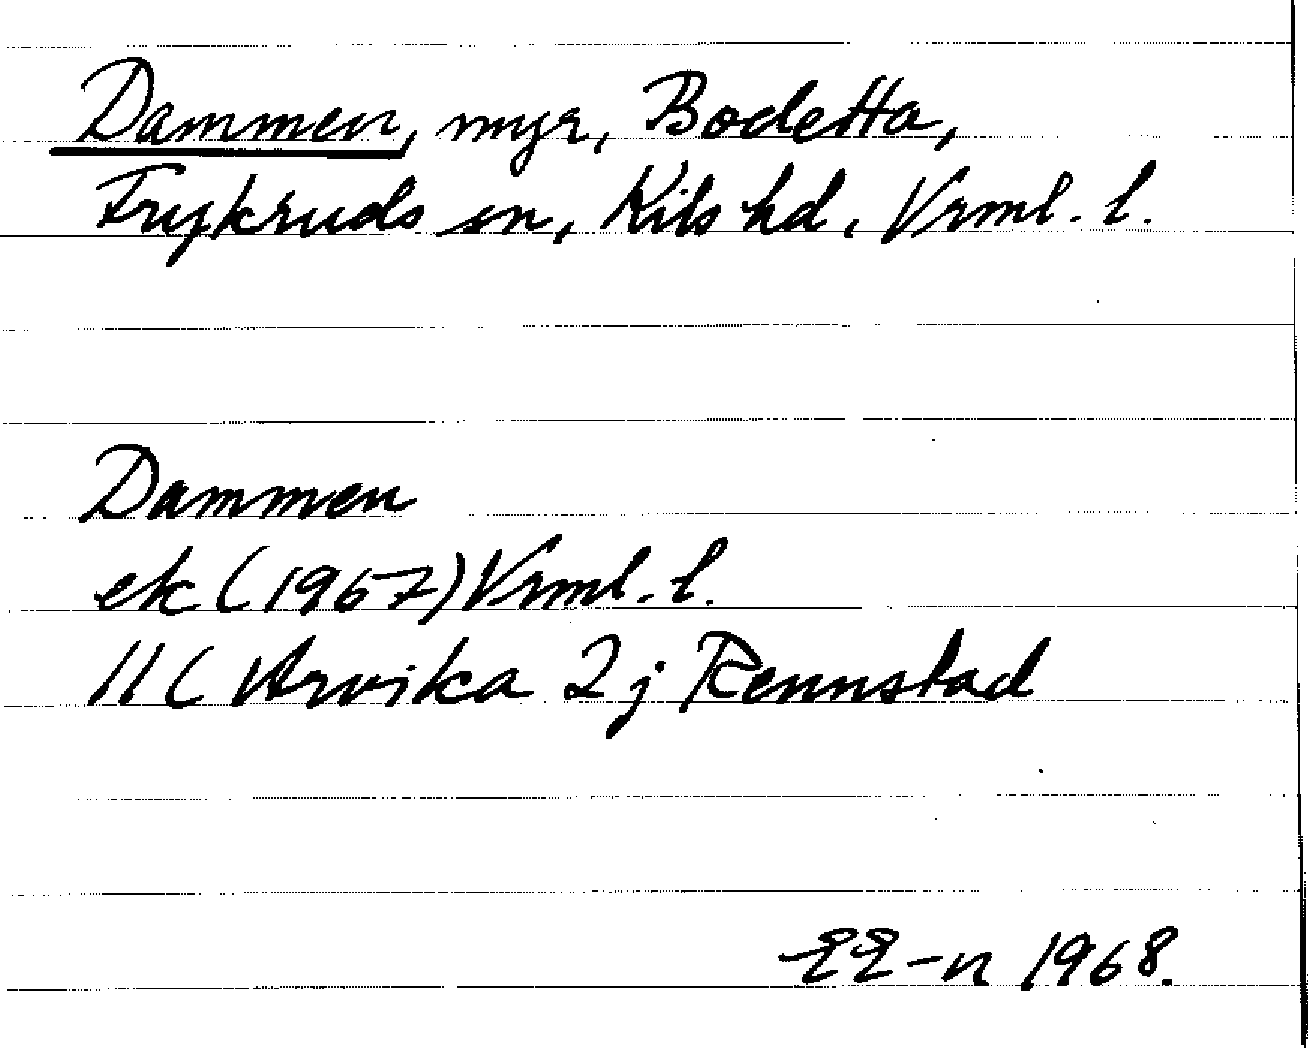 Dammen, myr, Bodetta,
Frykeruds sn, Kils hd, Vrml. l.
Dammen
ek (1967) Vrml. l.
11C Arvika 2j Rennstad
EE-n 1968.